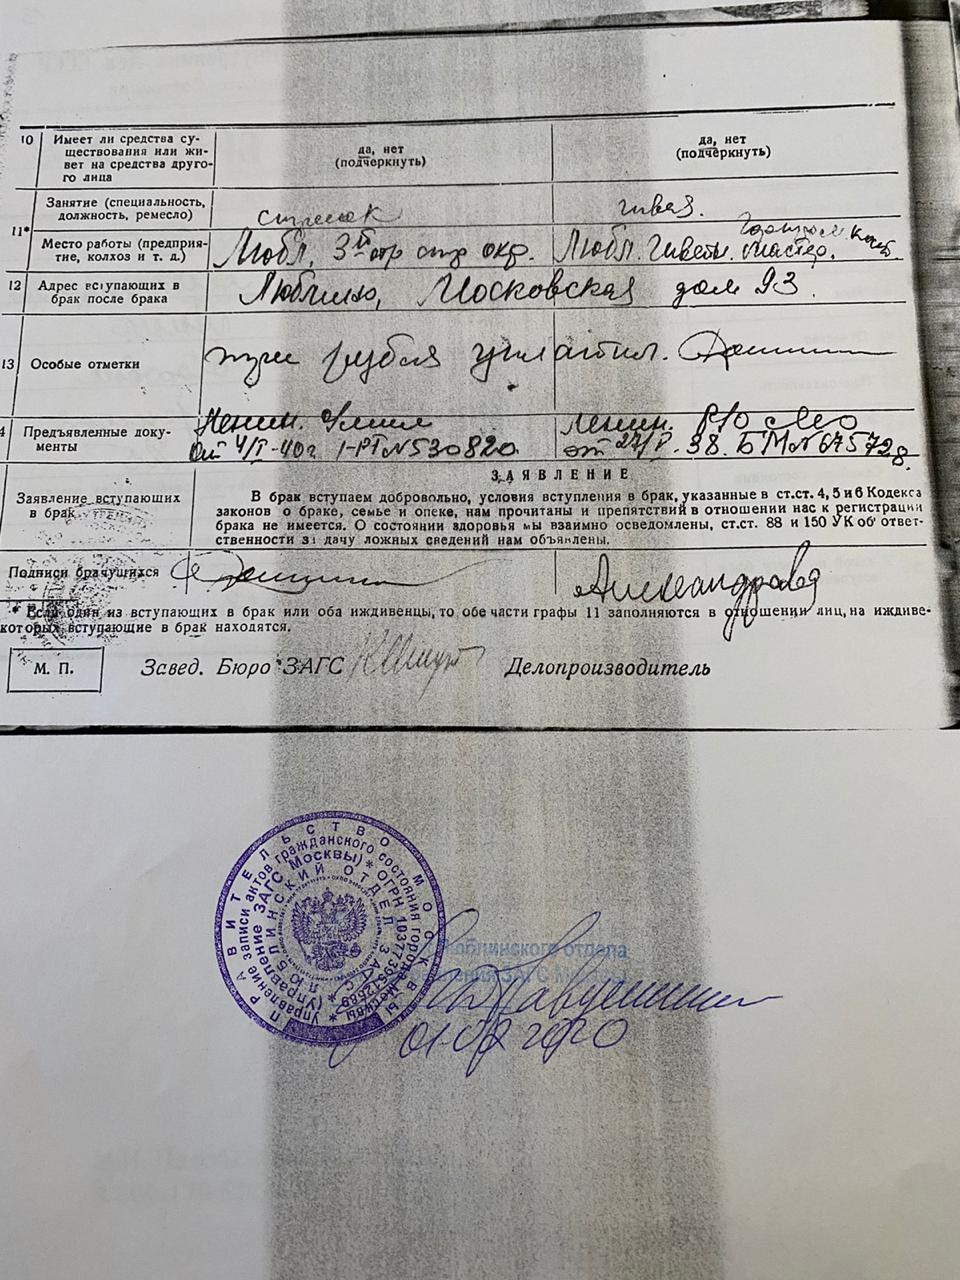 10 Имеет ли средства су-
ществования или жи-
вет на средства друго-
го лица
да, нет
(подчеркнуть)
да, нет
(подчеркнуть)
11*
Занятие (специальность,
должность, ремесло)
стрелок
швея.
Место работы (предприя-
тие, колхоз и т. д.)
Любл. 3й отр стр окр.
Любл. Швейн. мастер.
12 Адрес вступающих в
брак после брака
Люблино, Московская дом 93.
13 Особые отметки
три рубля уплатил.
Предъявленные доку-
менты
от 4/I-40г I-РТ №530820
Ленин. РЮ
от 27/I. 38. БМ №675728.
ЗАЯВЛЕНИЕ
Заявление вступающих
в брак
В брак вступаем добровольно, условия вступления в брак, указанные в ст.ст. 4, 5 и 6 Кодекса
законов о браке, семье и опеке, нам прочитаны и препятствий в отношении нас к регистрации
брака не имеется. О состоянии здоровья мы взаимно осведомлены, ст.ст. 88 и 150 УК об ответ-
ственности за дачу ложных сведений нам объявлены.
Подписи брачущихся
Александрова
* Если один из вступающих в брак или оба иждивенцы, то обе части графы 11 заполняются в отношении лиц, на иждиве-
которых вступающие в брак находятся.
М. П.
Завед. Бюро ЗАГС
Делопроизводитель
ПРАВИТЕЛЬСТВО МОСКВЫ
Управление записи актов гражданского состояния города Москвы
(Управление ЗАГС Москвы) * ОГРН 1037739512689 *
ЛЮБЛИНСКИЙ ОТДЕЛ ЗАГС
Люблинского отдела
ЗАГС